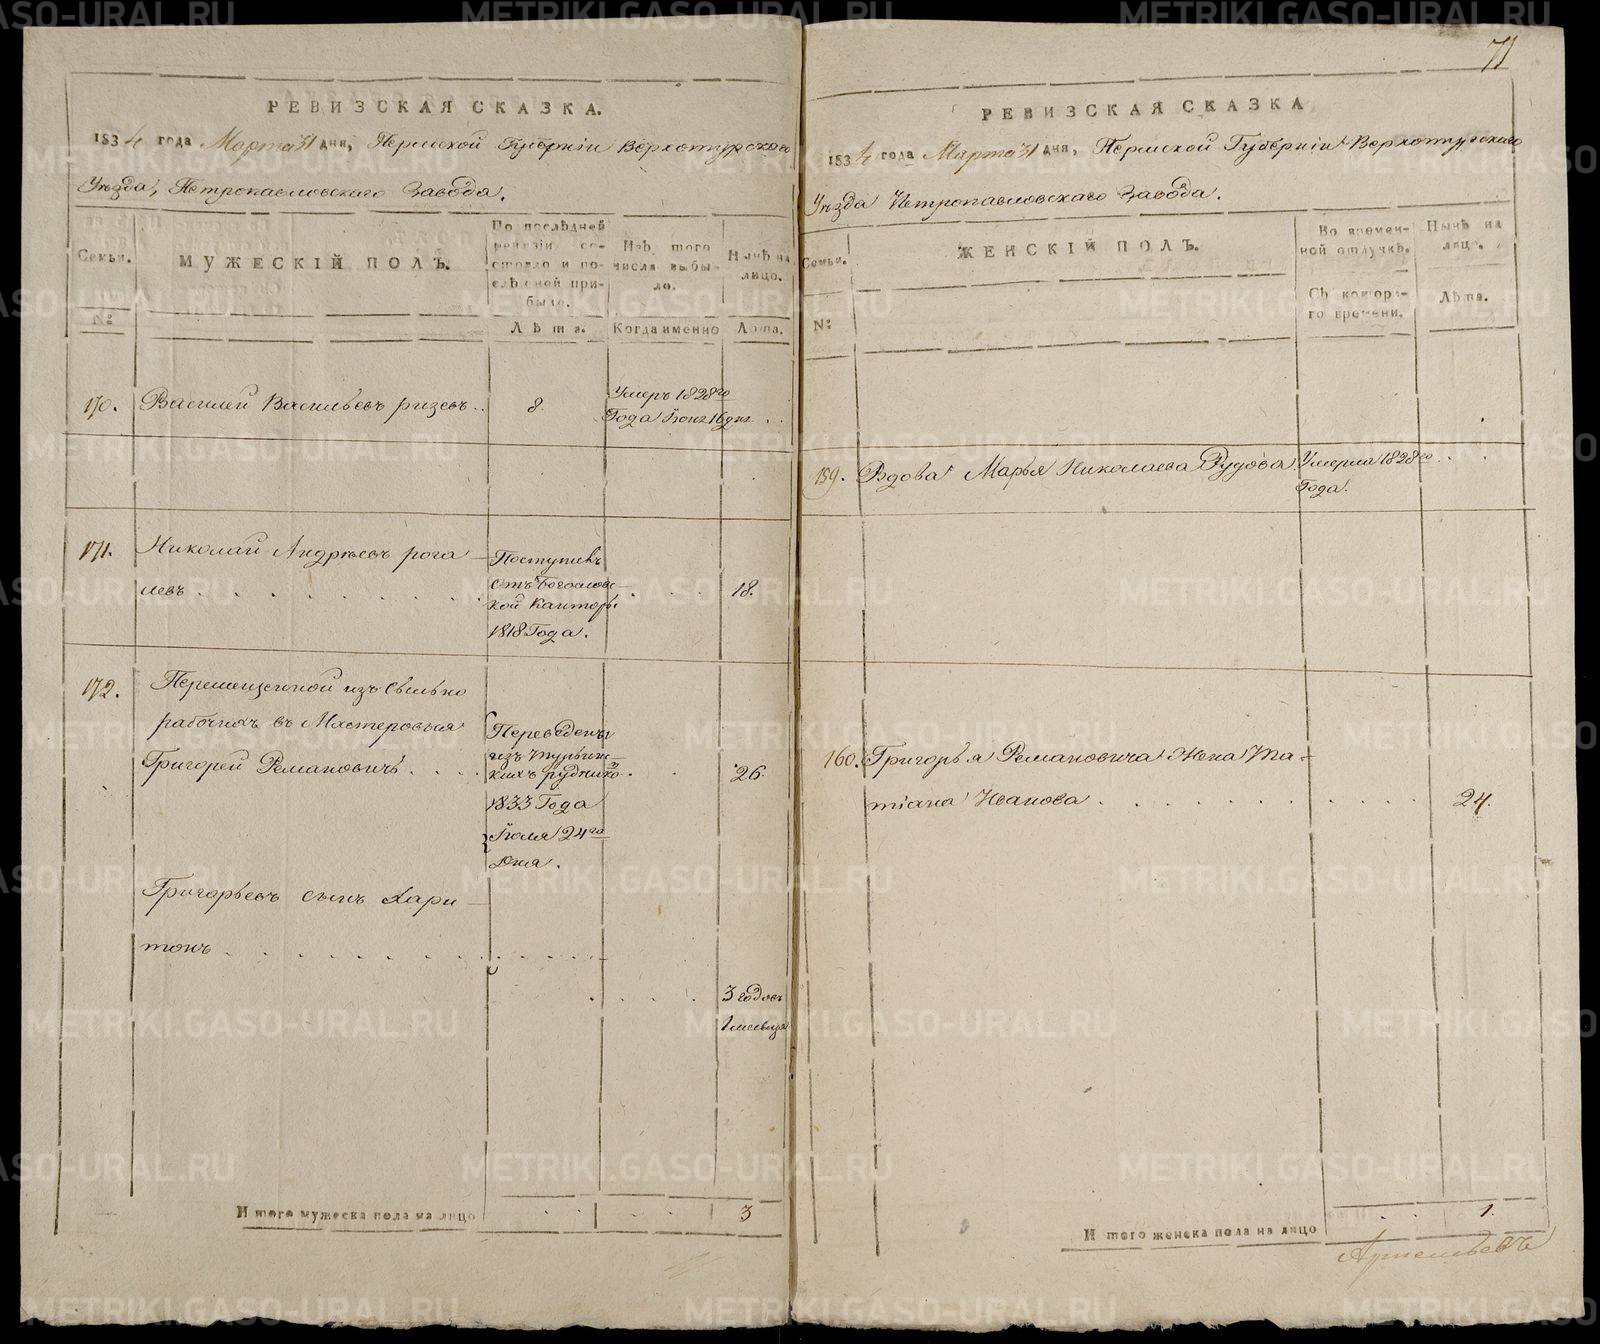 71
РЕВИЗСКАЯ СКАЗКА.
1834 года Марта 31 дня, Пермской Губерніи Верхотурскаго
Уѣзда, Петропавловскаго Завода.
Семьи.
№
МУЖЕСКІЙ ПОЛЪ.
По послѣдней
ревизіи со-
стояло и по-
слѣ оной при-
было.
Лѣта.
Изъ того
числа выбы-
ло.
Когда именно
Нынѣ на
лицо.
Лѣта.
170. Василей Васильевъ 8 Умеръ 1828го
Года
171. Николай Андрѣевъ рога
левъ
Поступивъ
отъ Богословс-
кой Канторы
1818 Года.
18.
172. Перемещенной изъ
рабочихъ въ Мастеровыя
Григорей Романовичъ
Переведенъ
изъ Турьинс-
кихъ рудниковъ
1833 Года
Іюля 24го
дня.
26.
Григорьевъ сынъ Хари
тонъ
3 годовъ
Итого мужеска пола на лицо 3
РЕВИЗСКАЯ СКАЗКА
1834 года Марта 31 дня, Пермской Губерніи Верхотурскаго
Уѣзда Петропавловскаго Завода.
Семьи.
№
ЖЕНСКІЙ ПОЛЪ.
Во времен-
ной отлучкѣ.
Съ котора-
го времени.
Нынѣ на
лицо.
Лѣта.
159. Вдова Марья Николаева Рудова Умерла 1828го
Года.
160. Григорья Романовича Жена Та-
тіана Иванова 24.
Итого женска пола на лицо 1.
METRIKI.GASO-URAL.RU